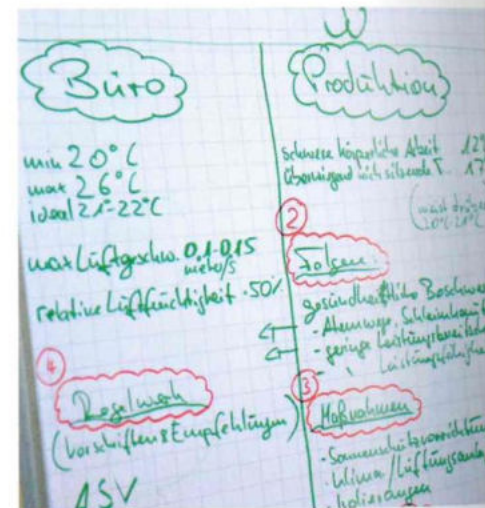 Büro
min 20°C
max 26°C
ideal 21°-22°C
max Luftgeschw. 0,1-0,15
meter/s
relative Luftfeuchtigkeit 50%
④
Regelwerk
(Vorschriften & Empfehlungen)
ASV
Produktion
schwere körperliche Arbeit 12°
überwiegend nicht sitzende T. 17
20°C-21°C
②
Folgen
gesundheitliche Beschwe
- Atemwege, Schleimhäut
- geringe Leistungsbereitscha
Leistungsfähigke
③
Maßnahmen
- Sonnenschutzvorrichtun
- Klima/Lüftungsanla
- Isolierungen